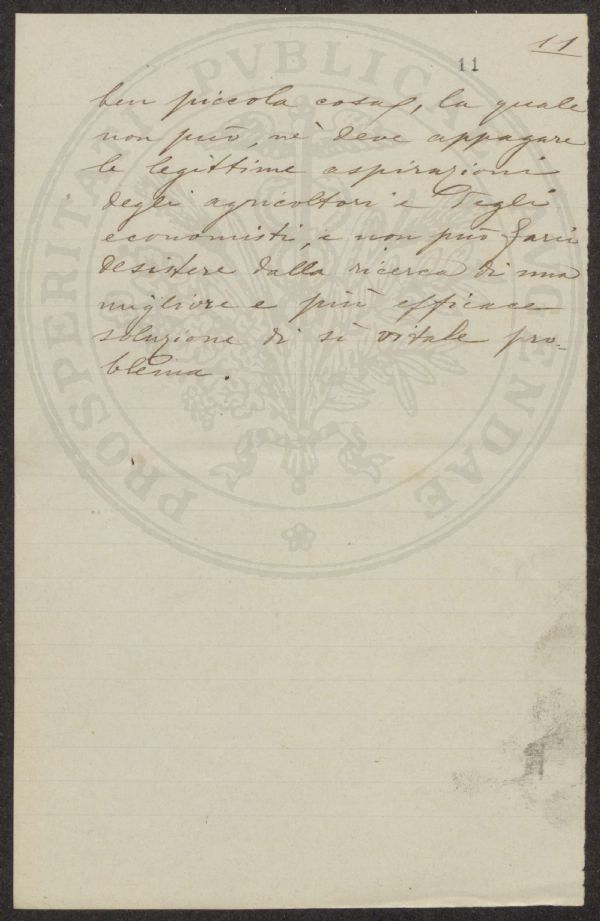 11
11
ben piccola cosa, la quale
non può, nè deve appagare
le legittime aspirazioni
degli agricoltori e degli
economisti, e non può farci
desistere dalla ricerca di una
migliore e più efficace
soluzione di sì vitale pro-
blema.
PROSPERITATI PVBLICAE AVGENDAE